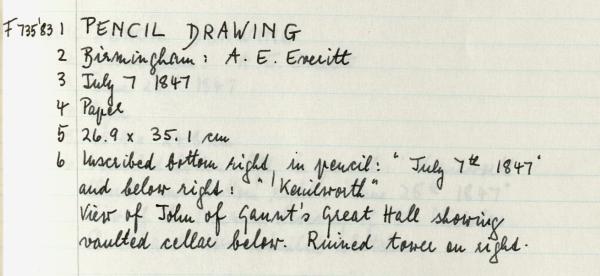 F 735'83 1 PENCIL DRAWING
2 Birmingham: A. E. Everitt
3 July 7 1847
4 Paper
5 26.9 x 35.1 cm
6 Inscribed bottom right, in pencil: "July 7th 1847"
and below right: "'Kenilworth"
View of John of Gaunt's Great Hall showing
vaulted cellar below. Ruined tower on right.